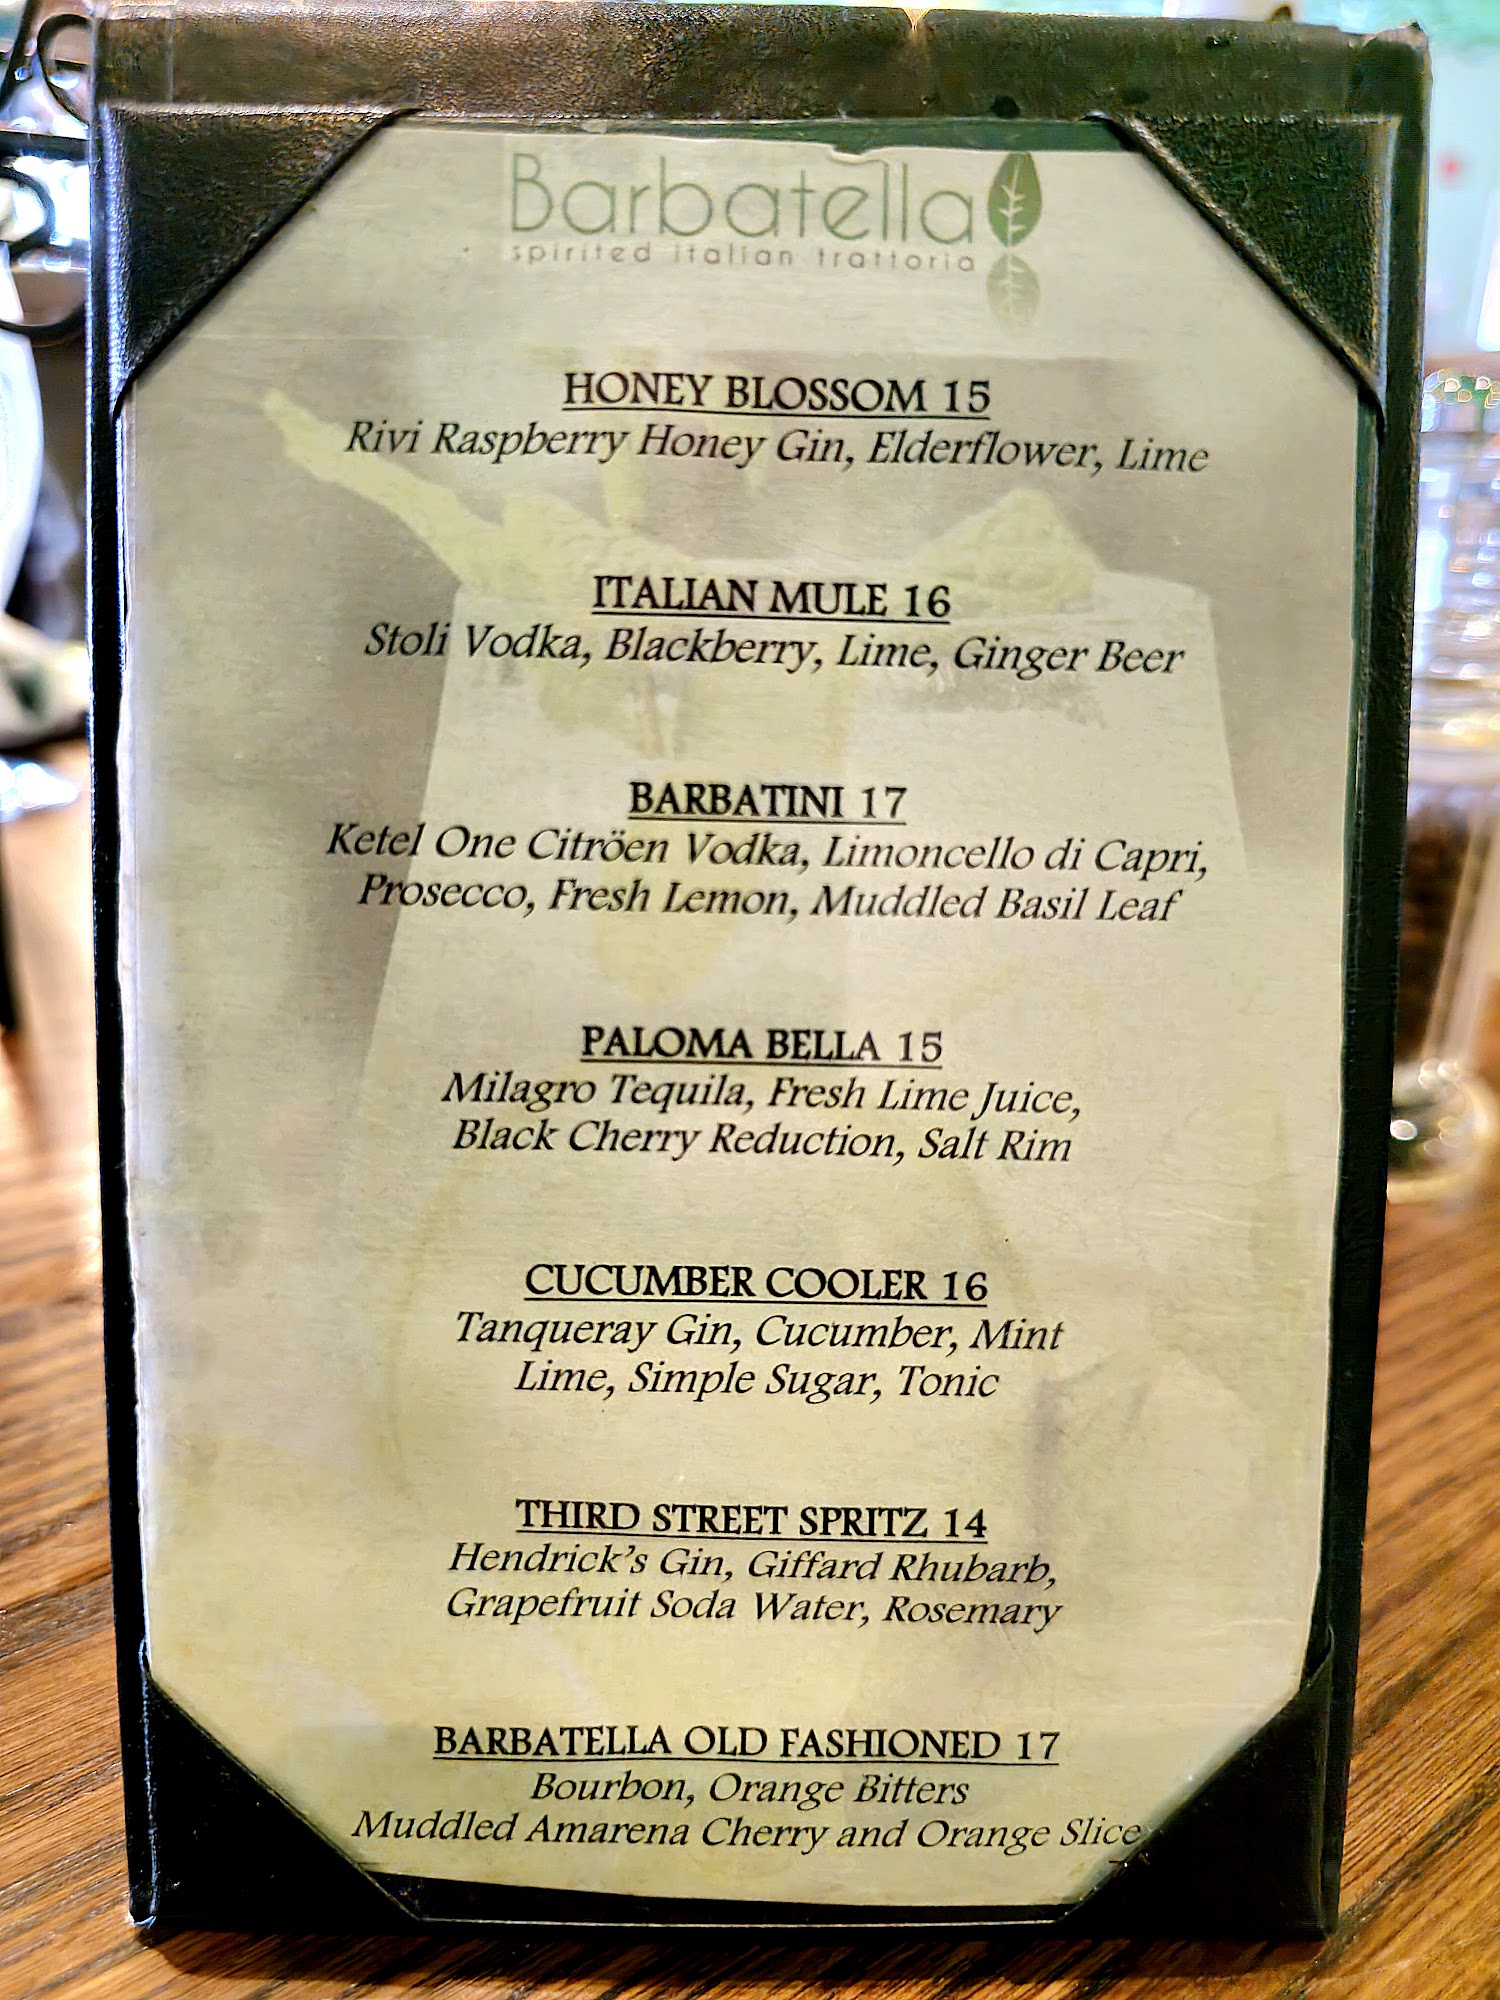 Barbatella
spirited italian trattoria
HONEY BLOSSOM 15
Rivi Raspberry Honey Gin, Elderflower, Lime
ITALIAN MULE 16
Stoli Vodka, Blackberry, Lime, Ginger Beer
BARBATINI 17
Ketel One Citröen Vodka, Limoncello di Capri,
Prosecco, Fresh Lemon, Muddled Basil Leaf
PALOMA BELLA 15
Milagro Tequila, Fresh Lime Juice,
Black Cherry Reduction, Salt Rim
CUCUMBER COOLER 16
Tanqueray Gin, Cucumber, Mint
Lime, Simple Sugar, Tonic
THIRD STREET SPRITZ 14
Hendrick's Gin, Giffard Rhubarb,
Grapefruit Soda Water, Rosemary
BARBATELLA OLD FASHIONED 17
Bourbon, Orange Bitters
Muddled Amarena Cherry and Orange Slice